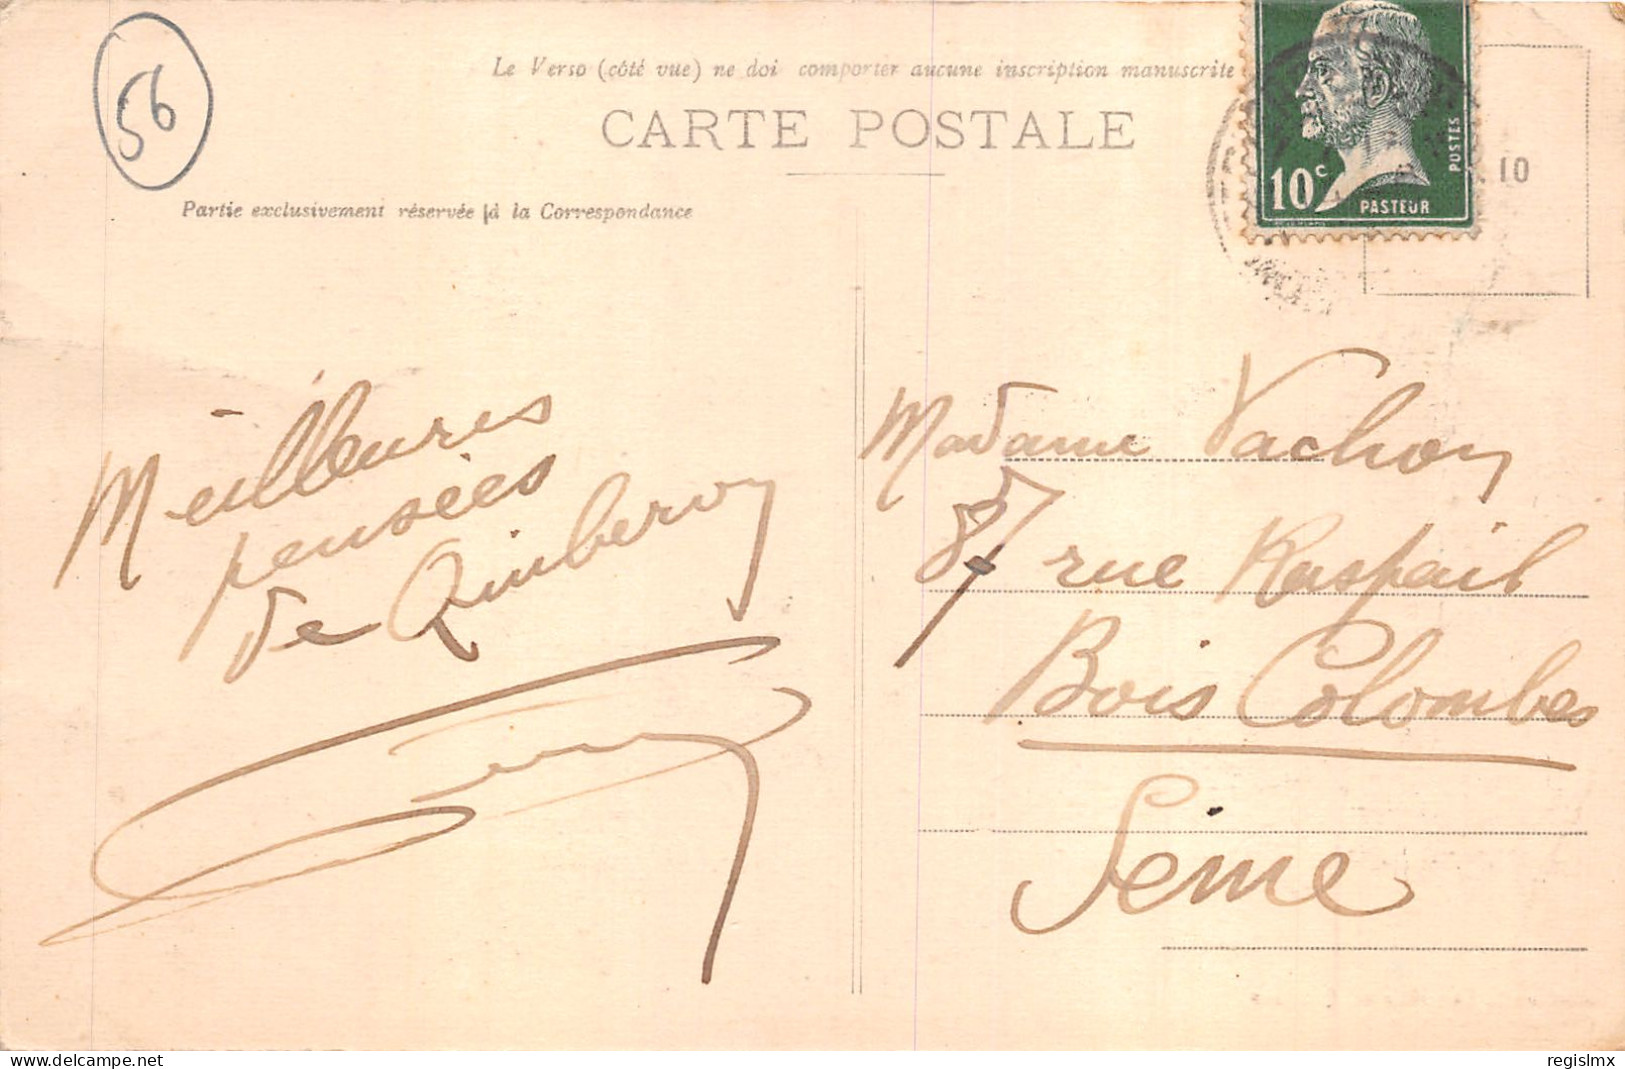 56
Le Verso (côté vue) ne doi comporter aucune inscription manuscrite
CARTE POSTALE
Partie exclusivement réservée à la Correspondance
10c
PASTEUR
POSTES
10
Meilleures
pensées
de Quiberon
Madame Vachon
87 rue Raspail
Bois Colombes
Seine
delcampe.net
regislmx